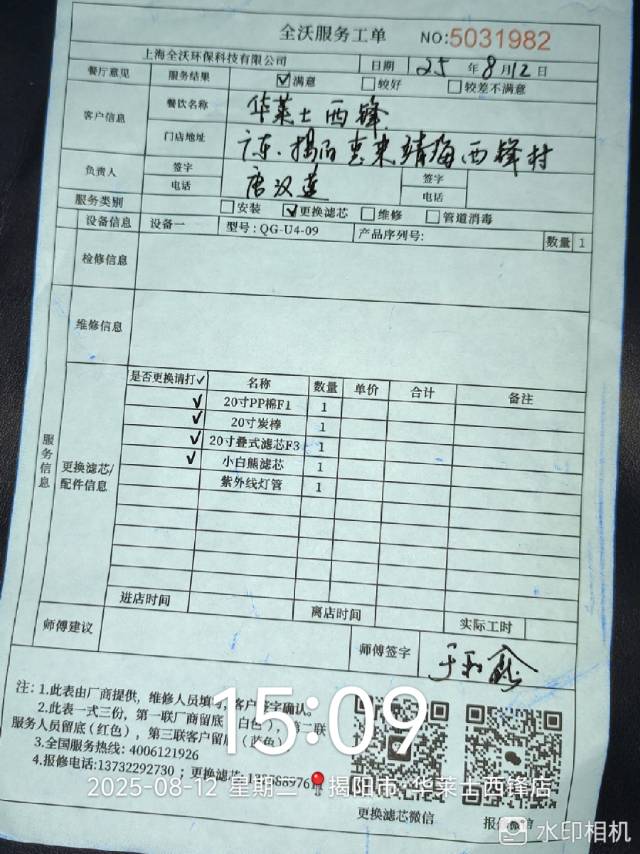 全沃服务工单 NO:5031982
上海全沃环保科技有限公司 日期 25 年 8 月 12 日
餐厅意见 服务结果 ☑满意 □较好 □较差不满意
客户信息 餐饮名称 华莱士西锋
门店地址 广东 揭阳 惠来 靖海 西锋村
负责人 签字 唐汉莲 签字
电话 电话
服务类别 □安装 ☑更换滤芯 □维修 □管道消毒
设备信息 设备一 型号: QG-U4-09 产品序列号: 数量 1
检修信息
维修信息
服务信息
更换滤芯/配件信息
是否更换请打✓ 名称 数量 单价 合计 备注
✓ 20寸PP棉F1 1
✓ 20寸炭棒 1
✓ 20寸叠式滤芯F3 1
✓ 小白熊滤芯 1
紫外线灯管 1
进店时间 离店时间 实际工时
师傅建议 师傅签字
注: 1.此表由厂商提供, 维修人员填写, 客户签字确认。
2.此表一式三份, 第一联厂商留底(白色), 第二联
服务人员留底(红色), 第三联客户留底(蓝色)
3.全国服务热线: 4006121926
4.报修电话:13732292730 ; 更换滤芯
更换滤芯微信
15:09
2025-08-12 星期二 揭阳市·华莱士西锋店
水印相机